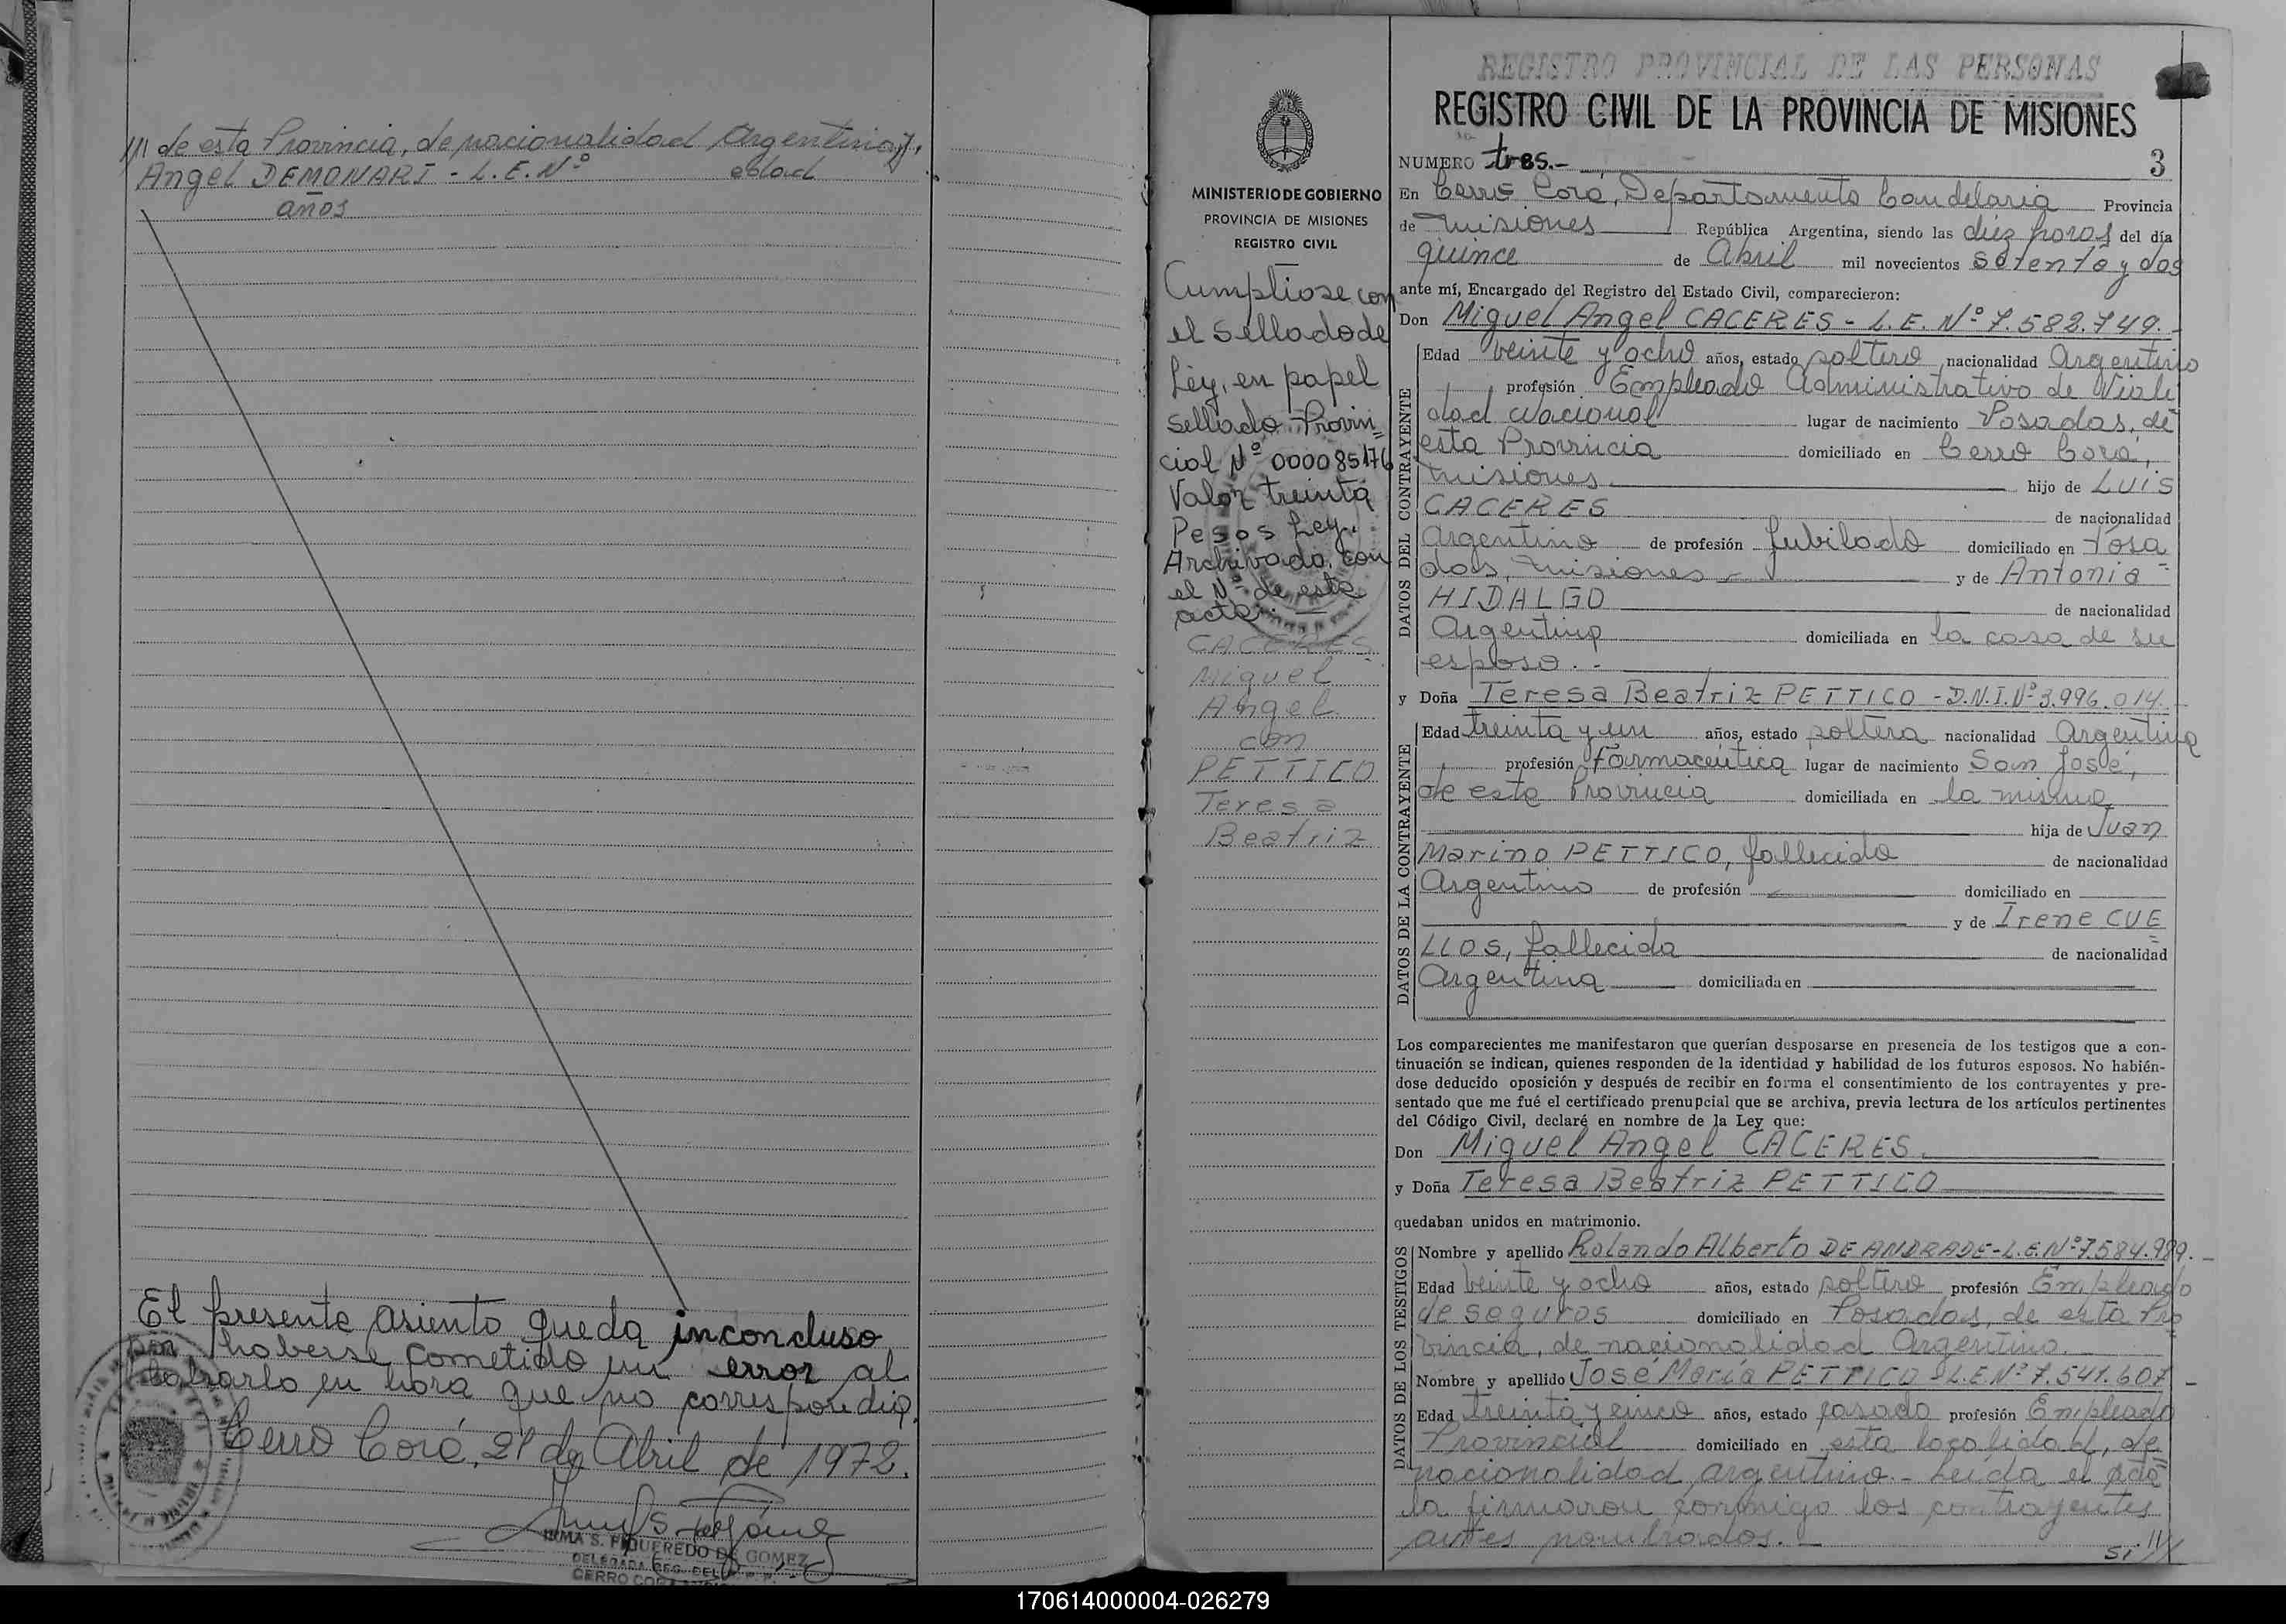 /// de esta Provincia, de nacionalidad Argentina y,
Angel DEMONARI - L.E. Nº edad
años
El presente asiento queda inconcluso
por haberse cometido un error al
labrarlo en hora que no correspondia.
Cerro Corá, 21 de Abril de 1972.
IRMA S. FIGUEREDO DE GOMEZ
DELEGADA REG. DEL
CERRO CORA
MINISTERIO DE GOBIERNO
PROVINCIA DE MISIONES
REGISTRO CIVIL
Cumpliose con
el Sellado de
Ley, en papel
Sellado Provin=
cial Nº 000085176
Valor treinta
Pesos Ley.
Archivado con
el Nº de esta
acta.
CACERES
Miguel
Angel
con
PETTICO
Teresa
Beatriz
REGISTRO PROVINCIAL DE LAS PERSONAS
REGISTRO CIVIL DE LA PROVINCIA DE MISIONES
NUMERO tres.- 3
En Cerro Corá, Departamento Candelaria Provincia
de Misiones República Argentina, siendo las diez horas del día
quince de Abril mil novecientos setenta y dos
ante mí, Encargado del Registro del Estado Civil, comparecieron:
Don Miguel Angel CACERES - L.E. Nº 7.582.749.-
DATOS DEL CONTRAYENTE
Edad veinte y ocho años, estado soltero nacionalidad Argentino
profesión Empleado Administrativo de Viali
dad Nacional lugar de nacimiento Posadas, de
esta Provincia domiciliado en Cerro Corá,
Misiones hijo de Luis
CACERES de nacionalidad
Argentino de profesión Jubilado domiciliado en Posa
das, Misiones y de Antonia
HIDALGO de nacionalidad
Argentina domiciliada en la casa de su
esposo.-
y Doña Teresa Beatriz PETTICO - D.N.I. Nº 3.996.014.
DATOS DE LA CONTRAYENTE
Edad treinta y un años, estado soltera nacionalidad Argentina
profesión Farmacéutica lugar de nacimiento San José,
de esta Provincia domiciliada en la misma
hija de Juan
Marino PETTICO, fallecido de nacionalidad
Argentino de profesión domiciliado en
y de Irene CUE
LLOS, fallecida de nacionalidad
Argentina domiciliada en
Los comparecientes me manifestaron que querían desposarse en presencia de los testigos que a con-
tinuación se indican, quienes responden de la identidad y habilidad de los futuros esposos. No habién-
dose deducido oposición y después de recibir en forma el consentimiento de los contrayentes y pre-
sentado que me fué el certificado prenupcial que se archiva, previa lectura de los artículos pertinentes
del Código Civil, declaré en nombre de la Ley que:
Don Miguel Angel CACERES.
y Doña Teresa Beatriz PETTICO
quedaban unidos en matrimonio.
DATOS DE LOS TESTIGOS
Nombre y apellido Rolando Alberto DE ANDRADE - L.E. Nº 7.584.989.-
Edad veinte y ocho años, estado soltero profesión Empleado
de seguros domiciliado en Posadas, de esta Pro
vincia, de nacionalidad Argentino.
Nombre y apellido José María PETTICO - L.E. Nº 7.541.607 -
Edad treinta y cinco años, estado casado profesión Empleado
Provincial domiciliado en esta localidad, de
nacionalidad argentino.- Leída el acta
la firmaron conmigo los contrayentes
antes nombrados.-
Si ///
170614000004-026279